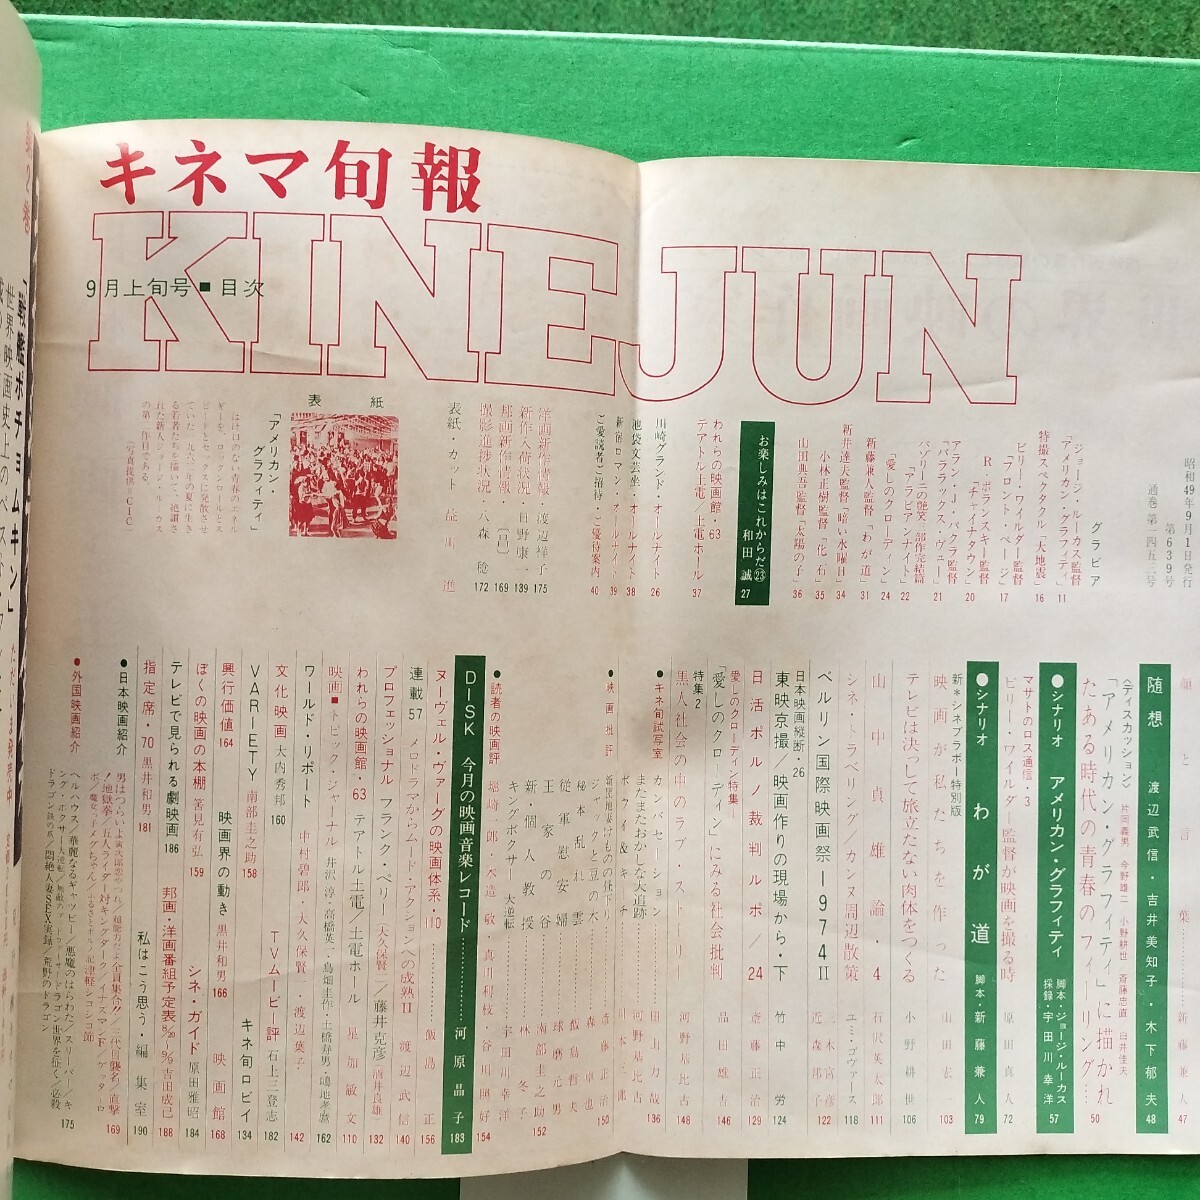 キネマ旬報
KINEJUN
9月上旬号■目次
昭和49年9月1日発行
第639号
通巻第一四五三号
グラビア
ジョージ・ルーカス監督
「アメリカン・グラフィティ」 11
特撮スペクタクル「大地震」 16
ビリー・ワイルダー監督
「フロント・ページ」 17
R・ポランスキー監督
「チャイナタウン」 20
アラン・J・パクラ監督
「パララックス・ビュー」 21
パゾリーニの艶笑三部作完結篇
「アラビアンナイト」 22
「愛しのクローディン」 24
新藤兼人監督「わが道」 31
新井達夫監督「暗い水曜日」 34
小林正樹監督「化石」 35
山田典吾監督「太陽の子」 36
お楽しみはこれからだ㉓
和田誠 27
われらの映画館・63
テアトル土電/土電ホール 37
川崎グランド・オールナイト 26
池袋文芸坐・オールナイト 38
新宿ロマン・オールナイト 39
ご愛読者ご招待・ご優待案内 40
洋画新作情報・渡辺祥子 175
新作入荷状況・日野康一 139
邦画新作情報 〔昌〕 169
撮影進捗状況・八森 稔 172
表紙・カット・益川 進
表紙
「アメリカン・
グラフィティ」
はけ口のない青春のエネル
ギーを、ロックンロールとス
ピードとセックスに発散させ
ていた一九六二年の夏に生き
る若者たちを描いて、絶讃さ
れた新人ジョージ・ルーカス
の第一作目である。
〔写真提供=CIC〕
顔と言葉 新藤兼人 47
随想 渡辺武信・吉井美知子・木下郁夫 48
〈ディスカッション〉 片岡義男 今野雄二 小野耕世 斎藤忠直 白井佳夫
「アメリカン・グラフィティ」に描かれ
たある時代の青春のフィーリング… 50
●シナリオ アメリカン・グラフィティ 脚本・ジョージ・ルーカス
採録・宇田川幸洋 57
マサトのロス通信・3
ビリー・ワイルダー監督が映画を撮る時 原田真人 72
●シナリオ わが道 脚本・新藤兼人 79
新*シネプラボー特別版
映画が私たちを作った 山田宏一 103
テレビは決って旅立たない肉体をつくる 小野耕世 106
山中貞雄論・4 石沢英太郎 111
シネ・トラベリング/カンヌ周辺散策 ユミ・ゴヴァース 118
ベルリン国際映画祭1974Ⅱ
日本映画縦断・26
東映京撮/映画作りの現場から・下 竹中 労 124
日活ポルノ裁判ルポ/24 斎藤正治 129
愛しのクローディン特集1
「愛しのクローディン」にみる社会批判
特集2
黒人社会の中のラブ・ストーリー 河野基比古 148
●キネ旬試写室
カンバセーション 田山力哉 136
またまたおかしな大追跡 河野基比古
●映画批評
新団地妻けものの昼下り 斎藤正治 150
ジャックと豆の木 森卓也
秘本乱れ雲 飯島哲夫
従軍慰安婦 球磨元男
王家の谷 南部圭之助
新・個人教授 林冬子
キングボクサー 大逆転 宇田川幸洋 152
●読者の映画評 堀崎一郎・木造敏・真川利枝・谷川照好 154
DISK 今月の映画音楽レコード 河原晶子 183
ヌーヴェル・ヴァーグの映画体系・110 飯島 正 156
連載57 メロドラマからムード・アクションへの成熟Ⅱ 渡辺武信 140
プロフェッショナル フランク・ペリ 〔大久保賢一/藤井克彦〔酒井良雄 132
われらの映画館・63 テアトル土電/土電ホール 星加敏文 110
映画■トピック・ジャーナル 井沢淳・高橋英一・島畑圭作・土橋寿男・嶋地孝麿 162
ワールド・リポート 中村碧郎・大久保賢一・渡辺葉子 142
文化映画 大内秀邦 160
TVムービー評 石上三登志 182
VARIETY 南部圭之助 158
キネ旬ロビイ 134
興行価値 164
映画界の動き・黒井和男 166
映画館 168
ぼくの映画の本棚 筈見有弘 159
シネ・ガイド 原田雅昭 184
テレビで見られる劇映画 186
邦画・洋画番組予定表8/20〜9/19吉田成己 188
指定席・70 黒井和男 181
私はこう思う・編集室 190
●日本映画紹介
169
●外国映画紹介
175
「戦艦ポチョムキン」ただいま発売中